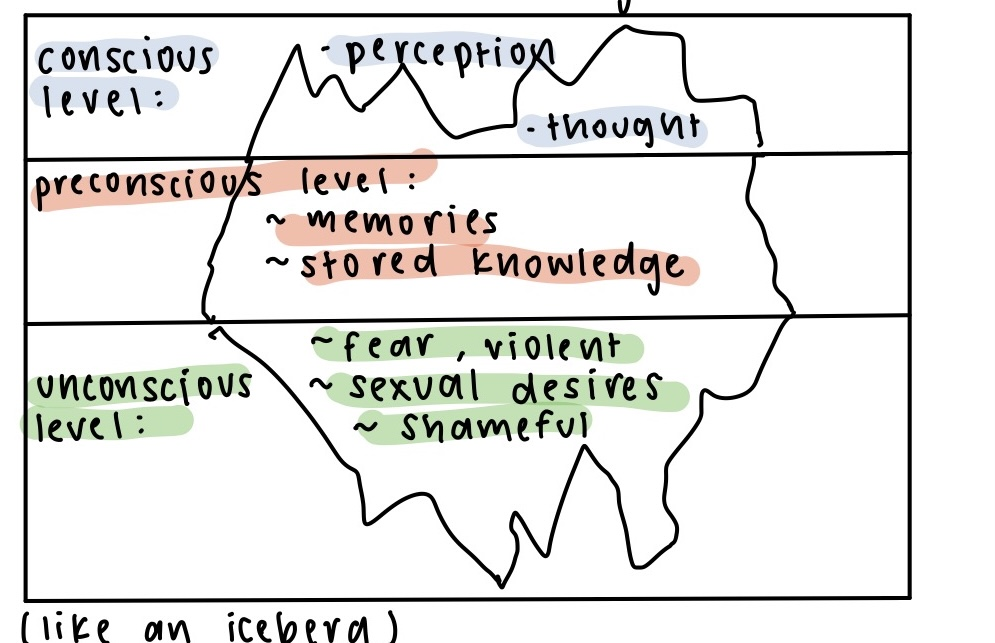 conscious
level:
- perception
- thought
preconscious level:
~ memories
~ stored knowledge
unconscious
level:
~ fear, violent
~ sexual desires
~ shameful
(like an iceberg)